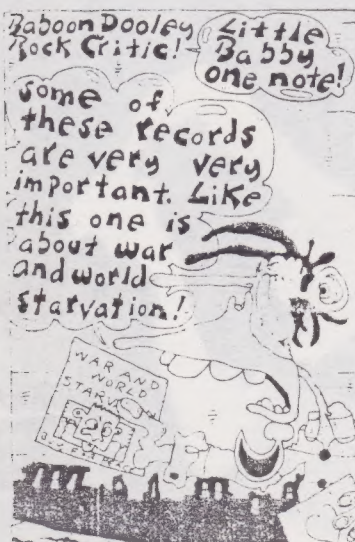 Baboon Dooley
Rock Critic!
Little
Babby
one note!
some of
these records
are very very
important. Like
this one is
about war
and world
starvation!
WAR AND
WORLD
STARV